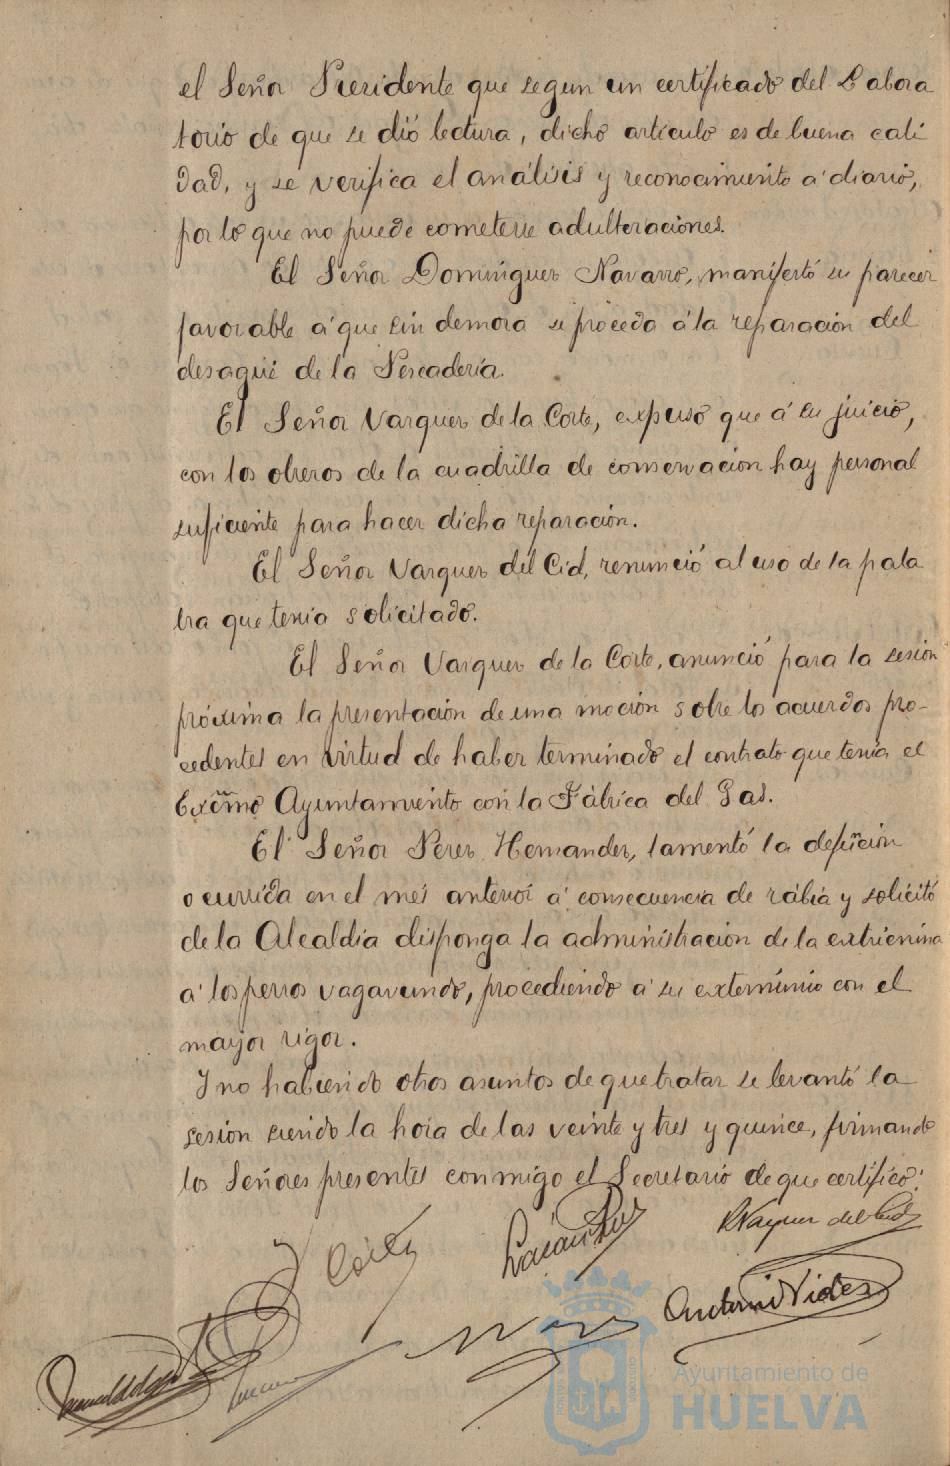 el Señor Presidente que segun un certificado del Labora
torio de que se dió lectura, dicho artículo es de buena cali
dad, y se verifica el análisis y reconocimiento á diario,
por lo que no puede cometerse adulteraciones.
El Señor Domínguez Navarro, manifestó su parecer
favorable á que sin demora se proceda á la reparación del
desagüe de la Pescadería.
El Señor Vazquez de la Corte, expuso que á su juicio,
con los obreros de la cuadrilla de conservacion hay personal
suficiente para hacer dicha reparación.
El Señor Vazquez del Cid, renunció al uso de la pala
bra que tenía solicitado.
El Señor Vazquez de la Corte, anunció para la sesión
próxima la presentación de una moción sobre los acuerdos pro-
cedentes en virtud de haber terminado el contrato que tenía el
Excmo Ayuntamiento con la Fábrica del Gas.
El Señor Perez Hernandez, lamentó la defunción
ocurrida en el més anterior á consecuencia de rábia y solicitó
de la Alcaldía disponga la administracion de la extricnina
á los perros vagavundo, procediendo á su exterminio con el
mayor rigor.
Y no habiendo otros asuntos de que tratar se levantó la
sesion siendo la hora de las veinte y tres y quince, firmando
los Señores presentes conmigo el Secretario de que certifico.
R Vazquez del Cid
Antonio Vides
Ayuntamiento de
HUELVA